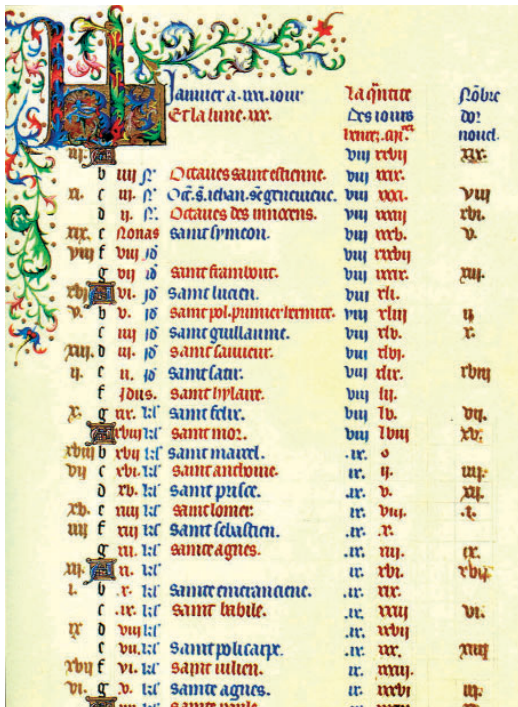 Januier a .xxxi. iour La q̃ntite Nõbre
Et la lune .xxx. Des iours dor
nouel.
iii. A viii xxvii xix.
b iiii N. Octaues saint estienne. viii xxix.
xi. c iii. N. Oct̃. s. iehan. sẽ geneuieue. viii xxxi. viii
d ii. N. Octaues des innocens. viii xxxiii xvi.
xix. e Nonas saint symeon. viii xxxv. v.
viii f viii id viii xxxvii
g vii id saint frambout. viii xxxix. xiii.
xvi A vi. id saint lucien. viii xli.
v. b v. id saint pol. pumier hermite. viii xliii ii
c iiii id saint guillaume. viii xlv. x.
xiii. d iii. id saint sauueur. viii xlvi.
ii. e ii. id saint satir. viii xlix. xviii
f Idus. saint hylaire. viii lii.
x. g xix. kl saint felix. viii lv. vii.
A xviii kl saint mor. viii lviii xv.
xviii b xvii kl saint marcel. .ix. o
vii c xvi. kl saint anthoine. ix. ii. iiii.
d xv. kl saint prisce. .ix. v. xii.
xv. e xiiii kl saint lomer. ix. viii. .i.
iiii f xiii kl saint sebastien. .ix. .x.
g xii. kl sainte agnes. ix. xiii. ix.
xii. A xi. kl ix. xvi. xvii
i. b .x. kl sainte emeranciene. ix. xix.
c .ix. kl saint babile. ix. xxiii vi.
ix d viii kl ix. xxvii
e vii. kl saint policarpe. ix. xxx. xiiii
xvii f vi. kl saint iulien. ix. xxxiii.
vi. g .v. kl sainte agnes. ix. xxxvi iii.